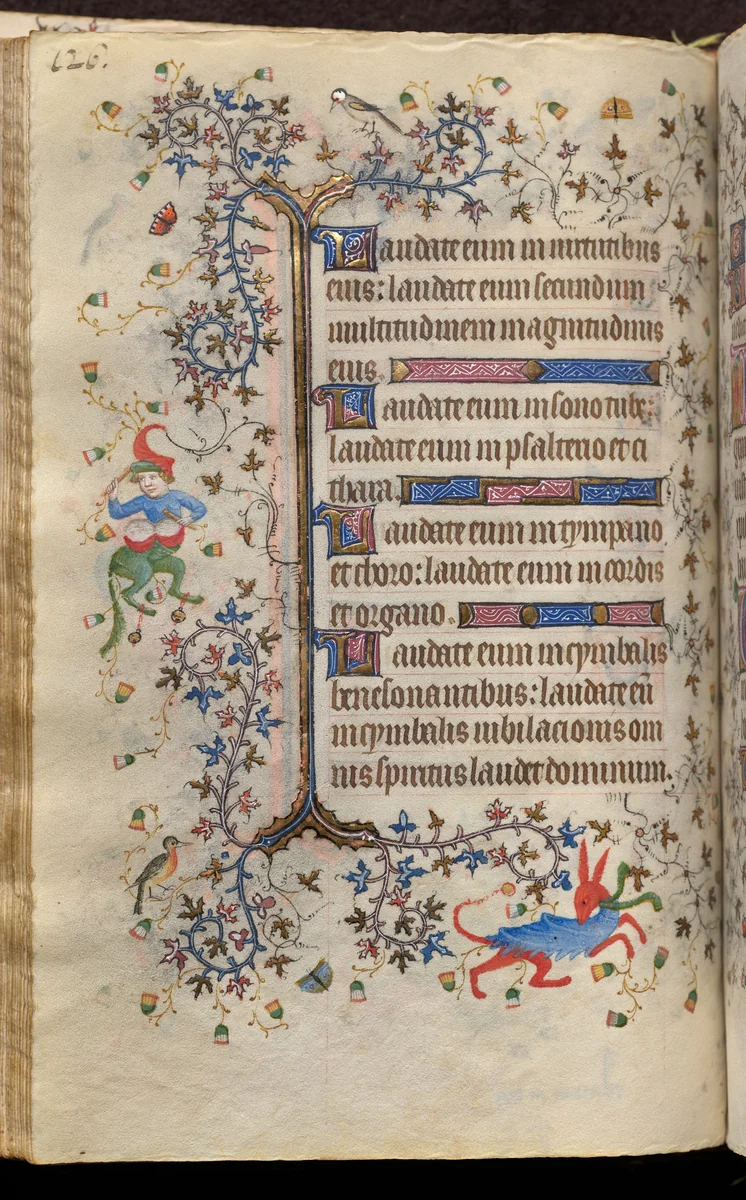 126.
Laudate eum in virtutibus
eius: laudate eum secundum
multitudinem magnitudinis
eius.
Laudate eum in sono tube:
laudate eum in psalterio et ci
thara.
Laudate eum in tympano
et choro: laudate eum in cordis
et organo.
Laudate eum in cymbalis
benesonantibus: laudate eū
in cymbalis iubilacionis om
nis spiritus laudet dominum.